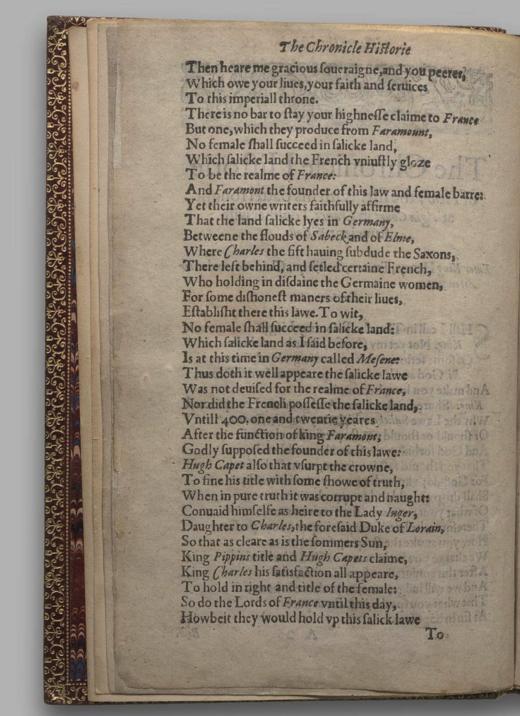 The Chronicle Historie
Then heare me gracious soueraigne, and you peeres,
Which owe your liues, your faith and seruices
To this imperiall throne.
There is no bar to stay your highnesse claime to France
But one, which they produce from Faramount,
No female shall succeed in salicke land,
Which salicke land the French vniustly gloze
To be the realme of France:
And Faramont the founder of this law and female barre:
Yet their owne writers faithfully affirme
That the land salicke lyes in Germany,
Betweene the flouds of Sabeck and of Elme,
Where Charles the fift hauing subdude the Saxons,
There left behind, and setled certaine French,
Who holding in disdaine the Germaine women,
For some dishonest maners of their liues,
Establisht there this lawe. To wit,
No female shall succeed in salicke land:
Which salicke land as I said before,
Is at this time in Germany called Mesene:
Thus doth it well appeare the salicke lawe
Was not deuised for the realme of France,
Nor did the French possesse the salicke land,
Vntill 400. one and twentie yeares
After the function of king Faramont,
Godly supposed the founder of this lawe:
Hugh Capet also that vsurpt the crowne,
To fine his title with some showe of truth,
When in pure truth it was corrupt and naught:
Conuaid himselfe as heire to the Lady Inger,
Daughter to Charles, the foresaid Duke of Lorain,
So that as cleare as is the sommers Sun,
King Pippins title and Hugh Capets claime,
King Charles his satisfaction all appeare,
To hold in right and title of the female:
So do the Lords of France vntil this day,
Howbeit they would hold vp this salick lawe
To